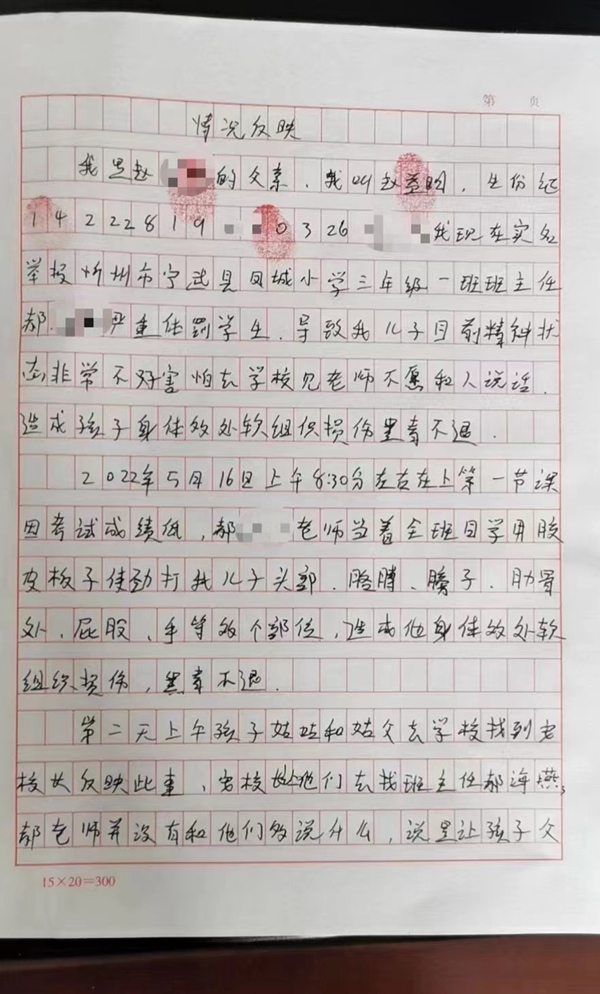 第 页
情况反映
我是赵 的父亲,我叫赵 ,生份证
14222819 0326 我现在实名
举报忻州市宁武县凤城小学三年级一班班主任
郝 严重体罚学生,导致我儿子目前精神状
态非常不好害怕去学校见老师不愿和人说话,
造成孩子身体多处软组织损伤黑青不退.
2022年5月16日上午8:30分左右在上第一节课
因考试成绩低,郝 老师当着全班同学用胶
皮板子使劲打我儿子头部、胳膊、膀子、肋骨
处、屁股、手等多个部位,造成他身体多处软
组织损伤,黑青不退.
第二天上午孩子姑姑和姑父去学校找到宏
校长反映此事,宏校长让他们去找班主任郝海燕,
郝老师并没有和他们多说什么,说是让孩子父
15×20=300